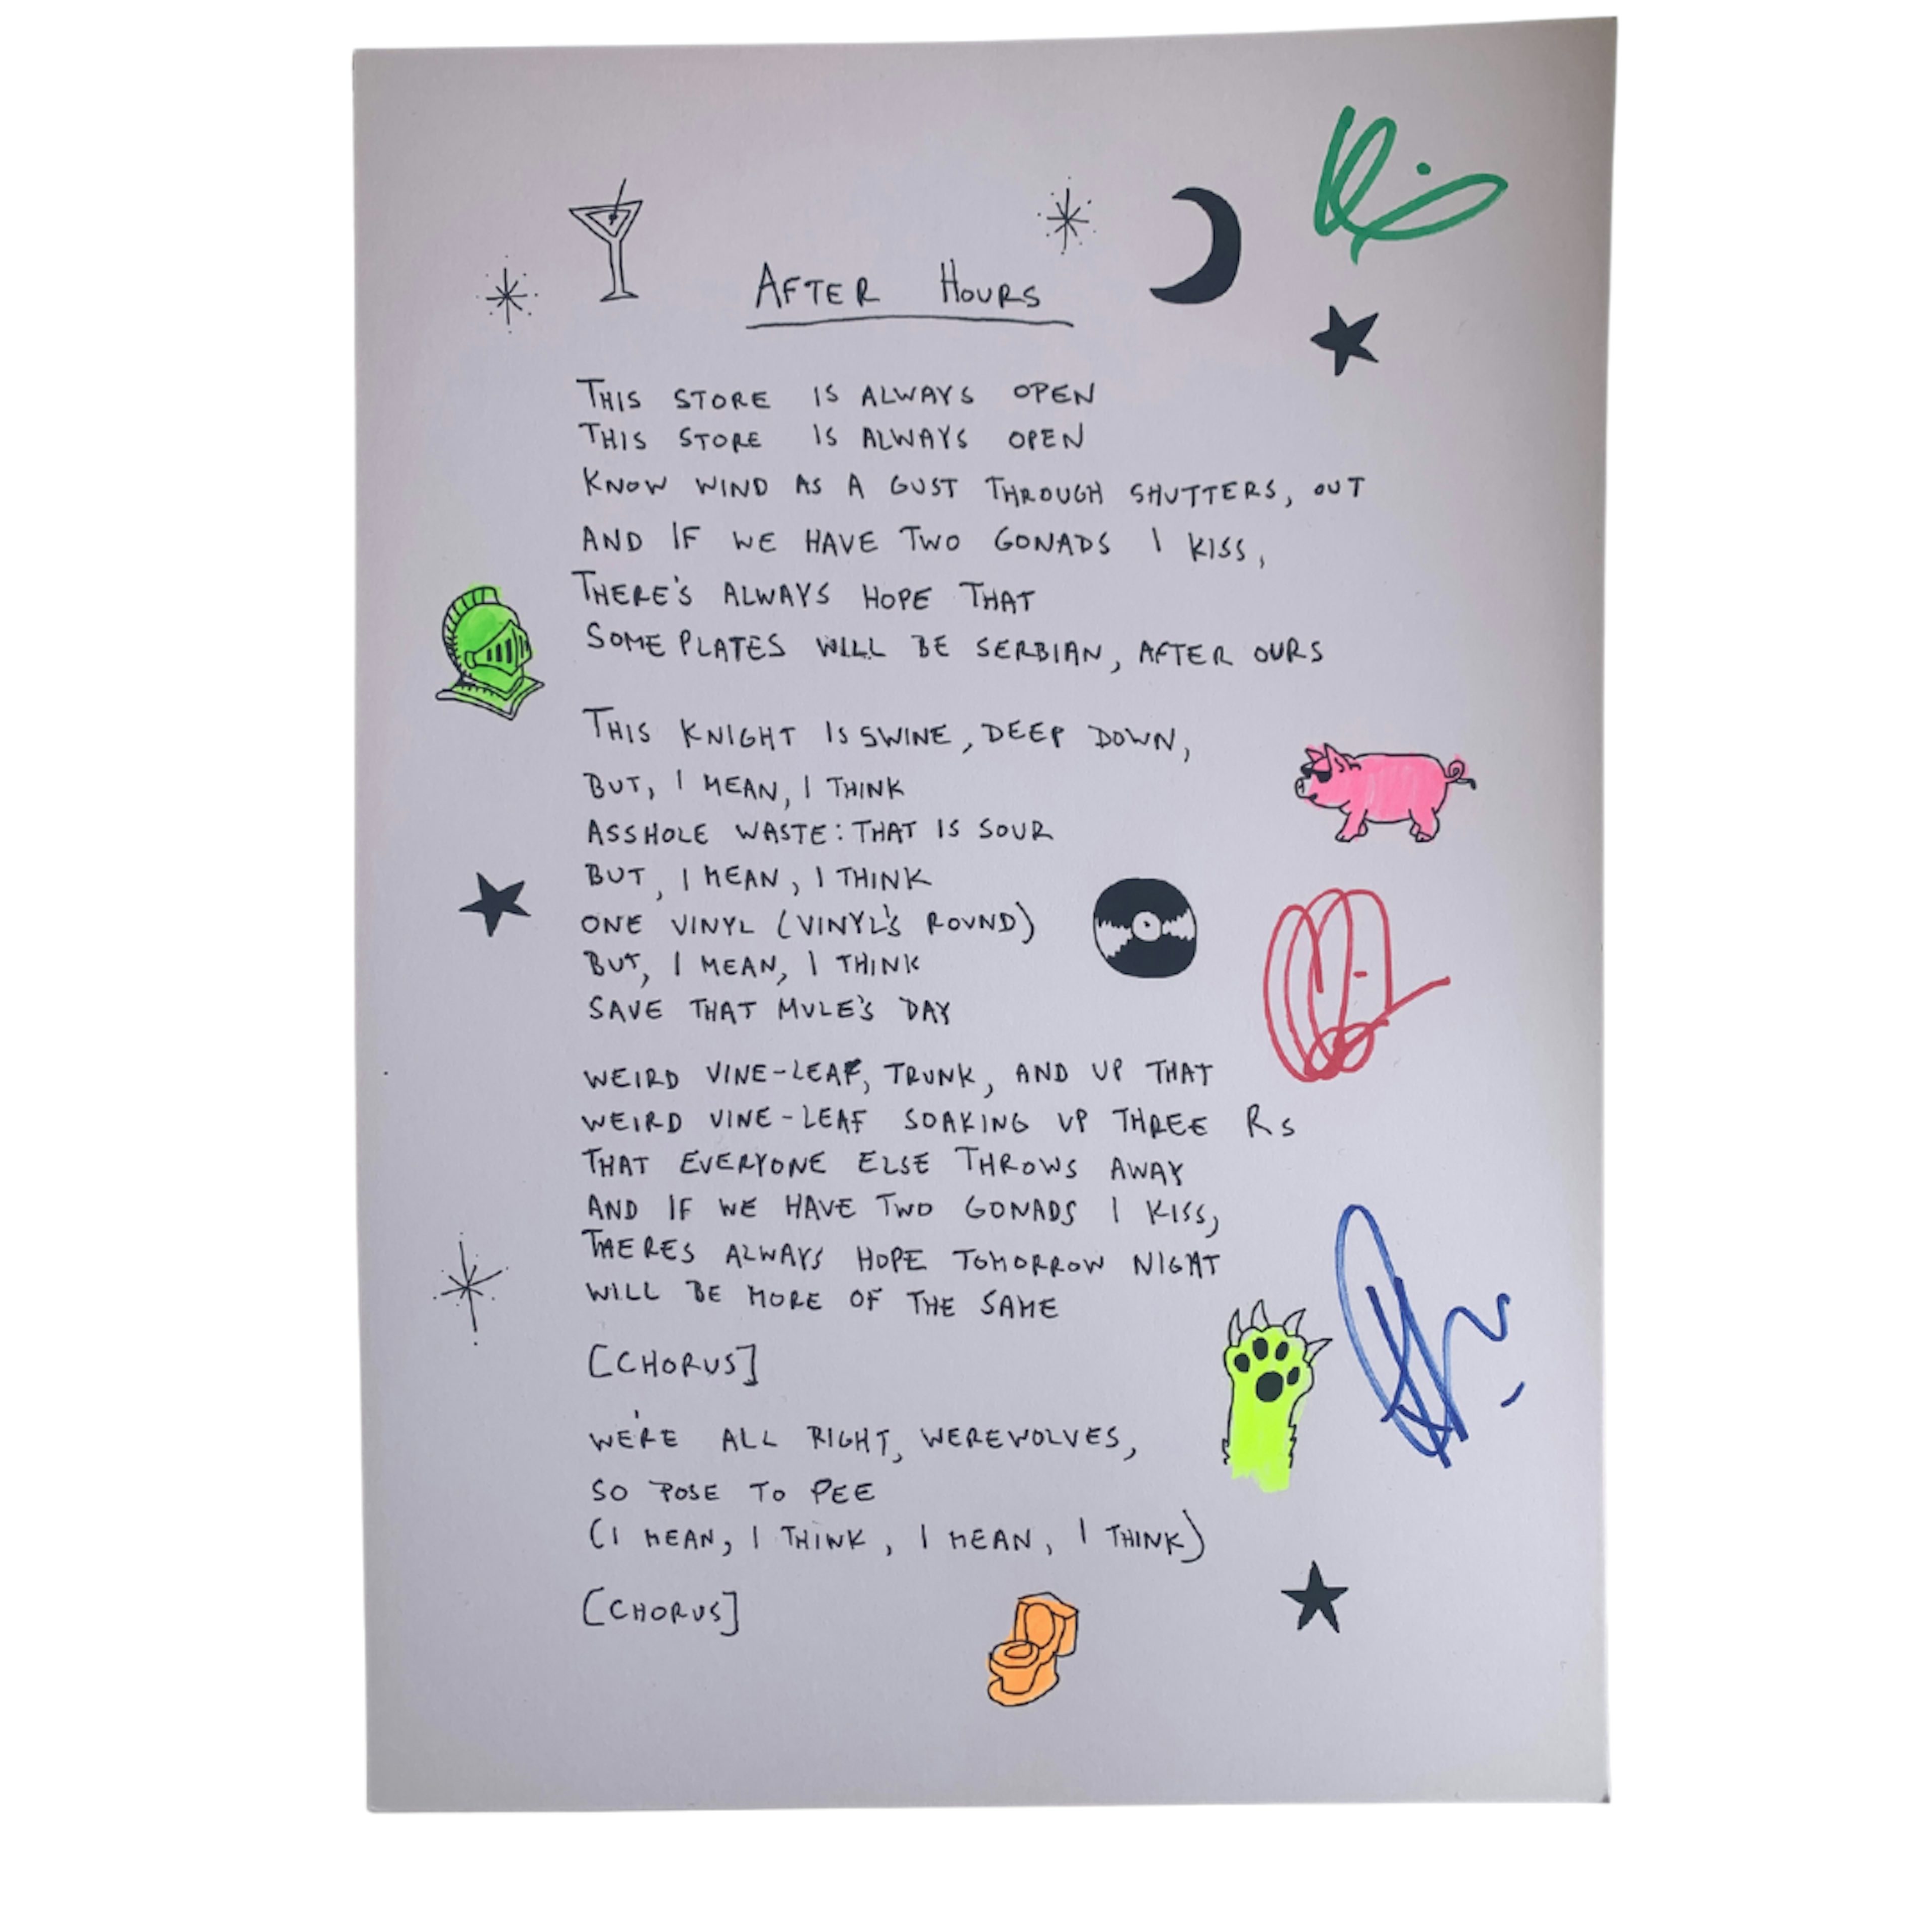 AFTER HOURS
THIS STORE IS ALWAYS OPEN
THIS STORE IS ALWAYS OPEN
KNOW WIND AS A GUST THROUGH SHUTTERS, OUT
AND IF WE HAVE TWO GONADS I KISS,
THERE'S ALWAYS HOPE THAT
SOME PLATES WILL BE SERBIAN, AFTER OURS
THIS KNIGHT IS SWINE, DEEP DOWN,
BUT, I MEAN, I THINK
ASSHOLE WASTE: THAT IS SOUR
BUT, I MEAN, I THINK
ONE VINYL (VINYL'S ROUND)
BUT, I MEAN, I THINK
SAVE THAT MULE'S DAY
WEIRD VINE-LEAF, TRUNK, AND UP THAT
WEIRD VINE-LEAF SOAKING UP THREE Rs
THAT EVERYONE ELSE THROWS AWAY
AND IF WE HAVE TWO GONADS I KISS,
THERES ALWAYS HOPE TOMORROW NIGHT
WILL BE MORE OF THE SAME
[CHORUS]
WE'RE ALL RIGHT, WEREWOLVES,
SO POSE TO PEE
(I MEAN, I THINK, I MEAN, I THINK)
[CHORUS]